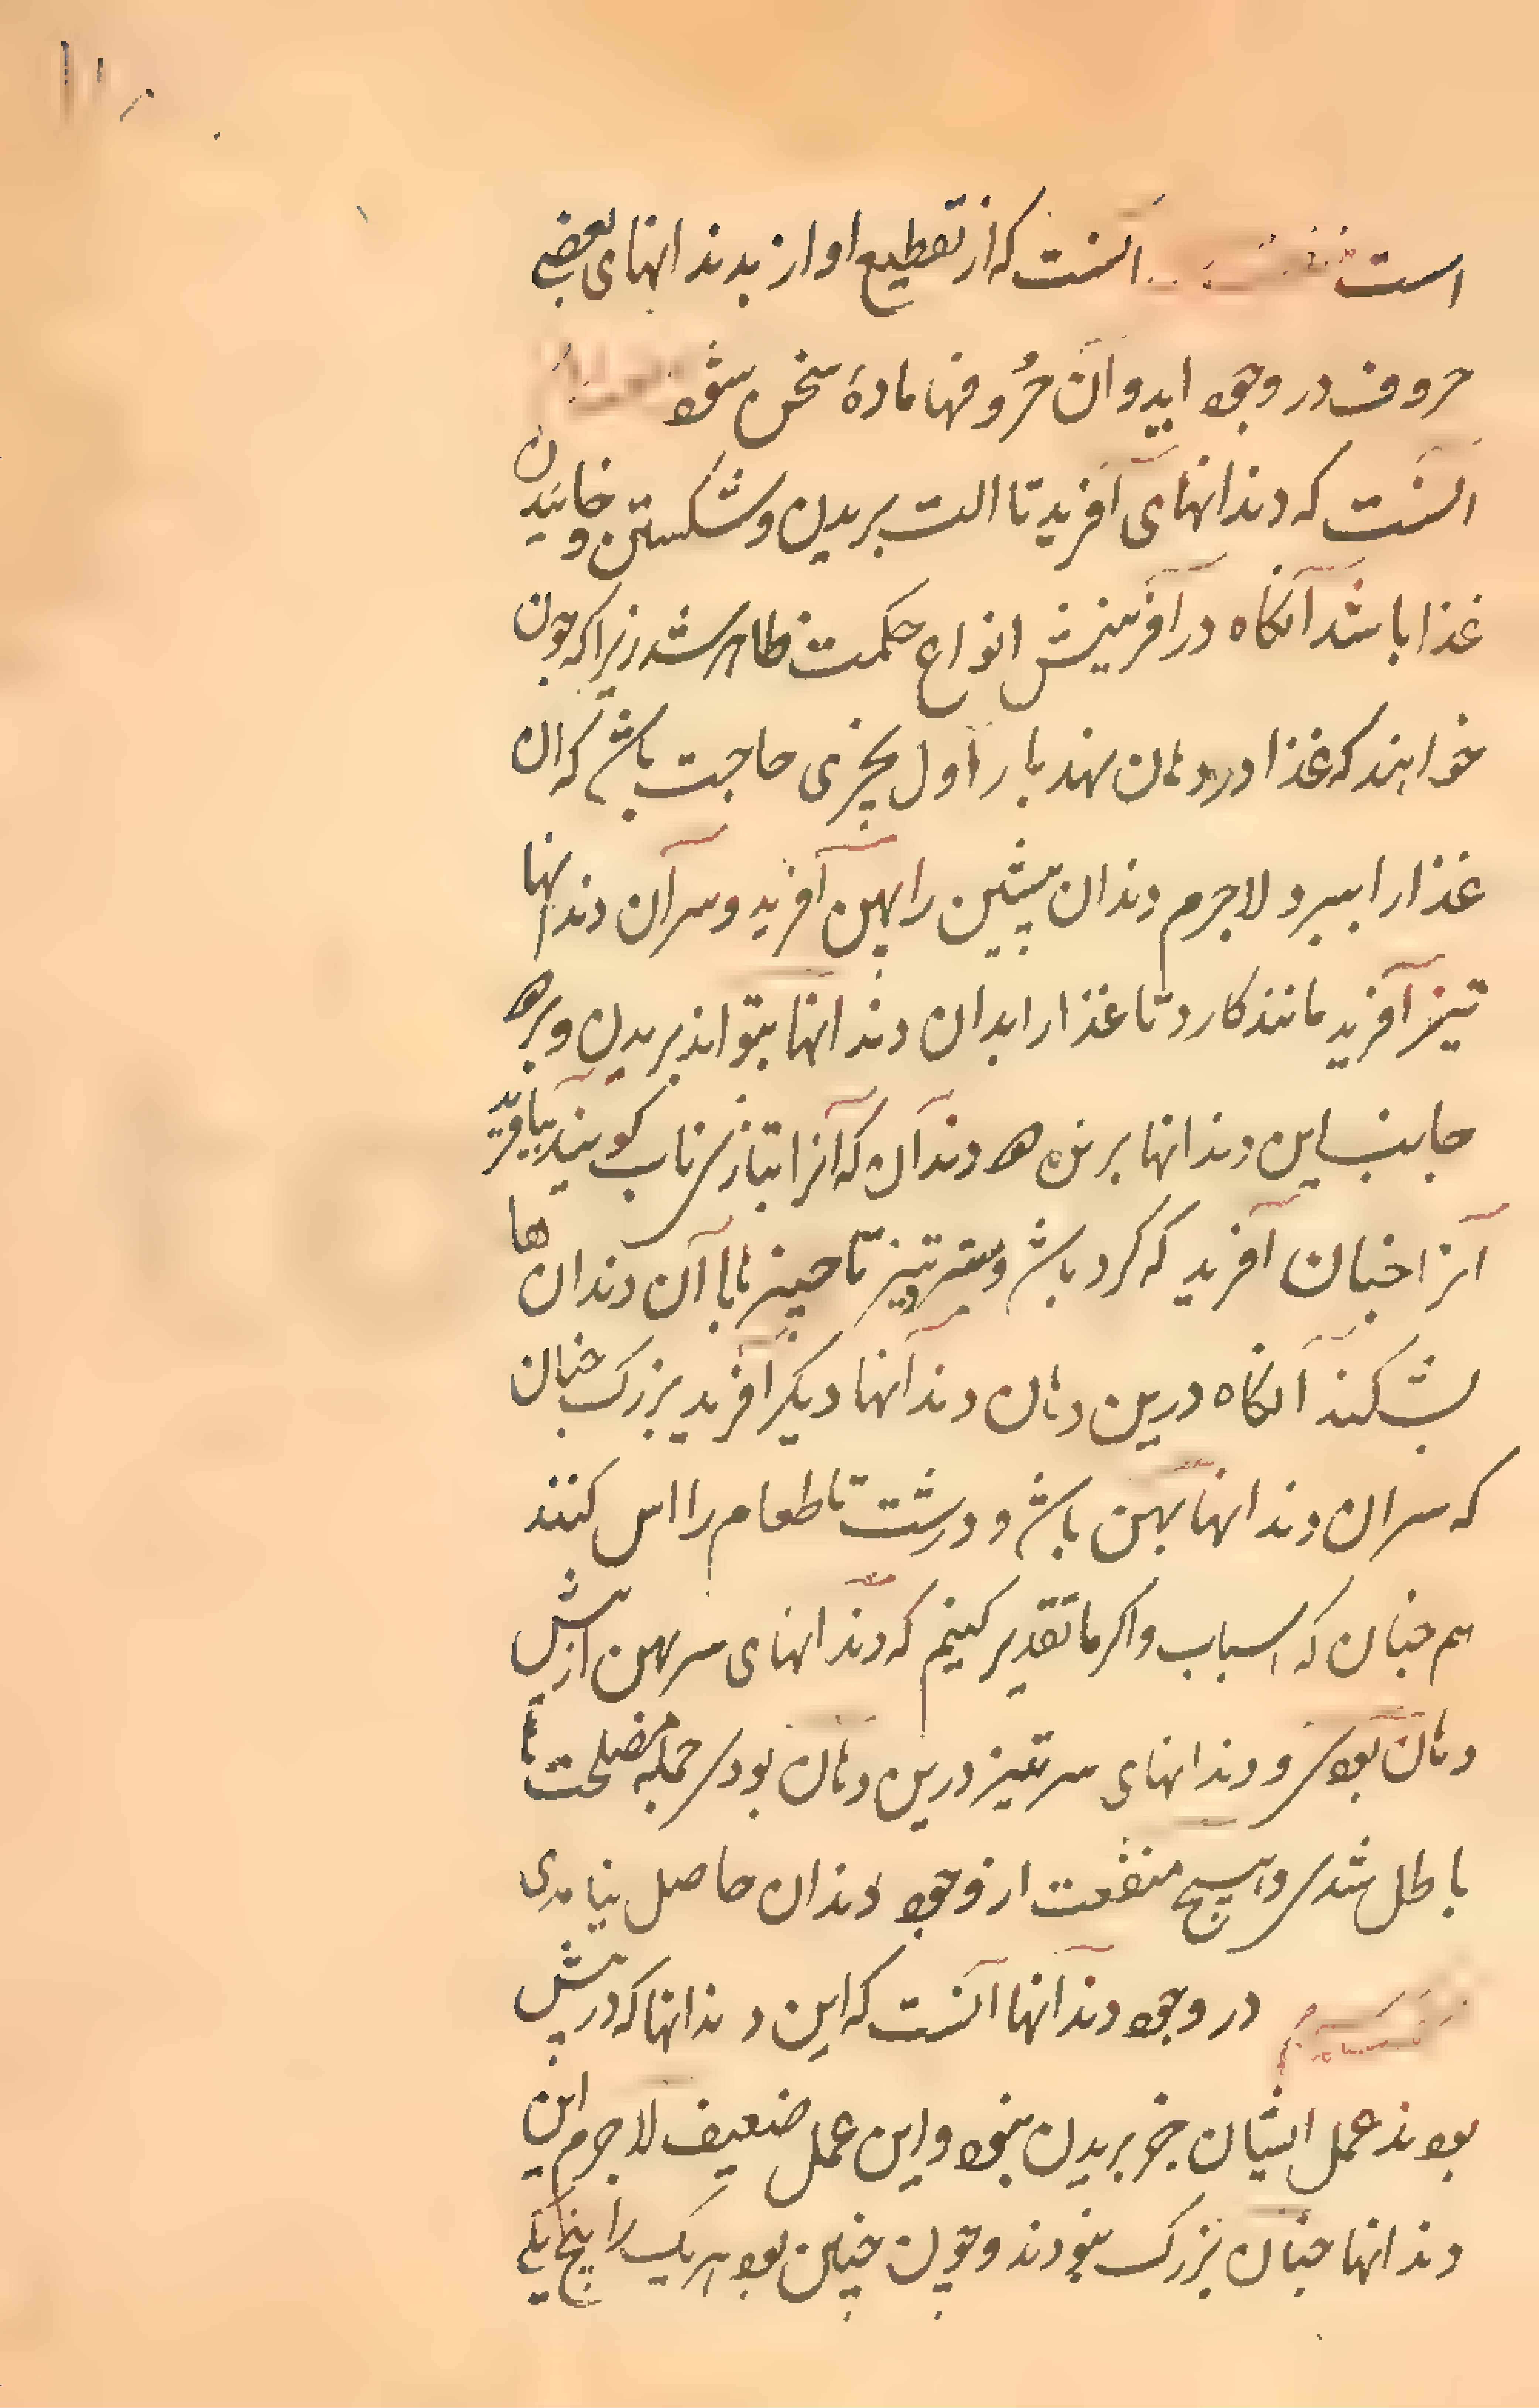 است آنست که از تقطیع اواز بدندانهای بعضی
حروف در وجود اید و آن حروفها مادهٔ سخن شود
آنست که دندانهای آفرید تا الت بریدن و شکستن و خاییدن
غذا باشد آنکاه در آفرینش انواع حکمت ظاهر شد زیرا که چون
خواهند که غذا در دهان نهند بار اول بچیزی حاجت باشد که ان
غذا را ببرد لاجرم دندان پیشین را پهن آفرید و سر آن دندانها
تیز آفرید مانند کارد تا غذا را بدان دندانها بتواند بریدن و بر هر دو
جانب این دندانها بر نره هر دندان که آنرا بتازی ناب کویند بیافرید
آنرا چنان آفرید که کرد باشد و سر تیز تا چیزها با آن دندان ها
بشکند آنکاه درین دهان دندانها دیکر آفرید بزرک چنان
که سر ان دندانها پهن باشد و درشت تا طعام را اس کنند
هم چنان که اسباب و اکر ما تقدیر کنیم که دندانهای سر پهن از پیش
دهان بودی و دندانهای سر تیز درین دهان بودی جمله مصلحت ها
باطل شدی و هیچ منفعت از وجود دندان حاصل نیامدی
در وجود دندآنها آنست که این دندانها که در پیش
بودند عمل ایشان جز بریدن نبود و این عمل ضعیف لاجرم این
دندانها چنان بزرک نبودند و چون چنین بود هر یک را بیخ یکی